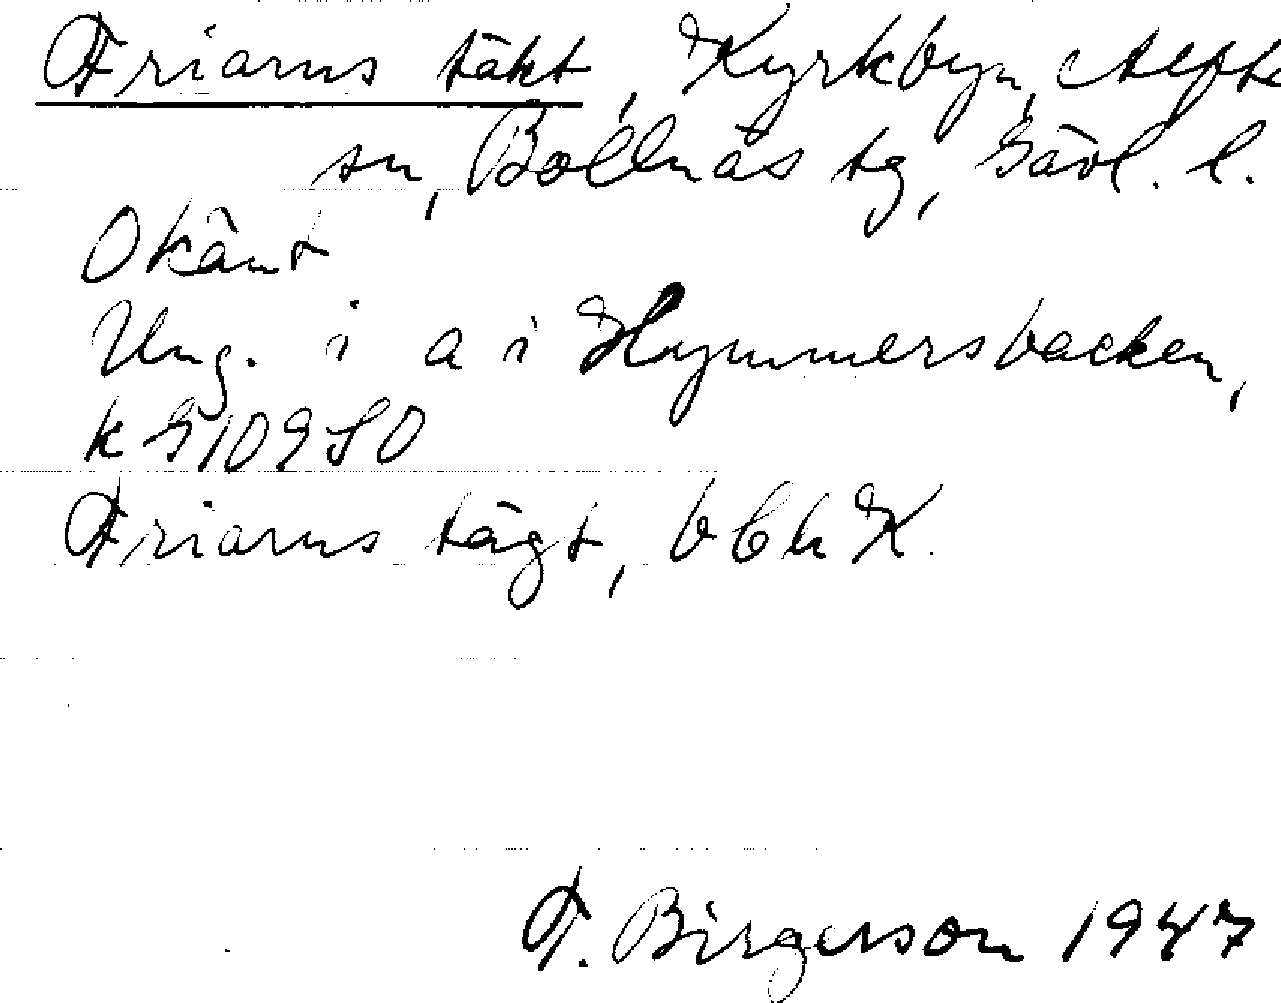 Friarns täkt, Kyrkbyn, Alfta
sn, Bollnäs tg, Gävl. l.
Okänt
Ung. i a i Hymmersbacken,
k G109S0
Friarns tägt, bCh K.
F. Birgerson 1947